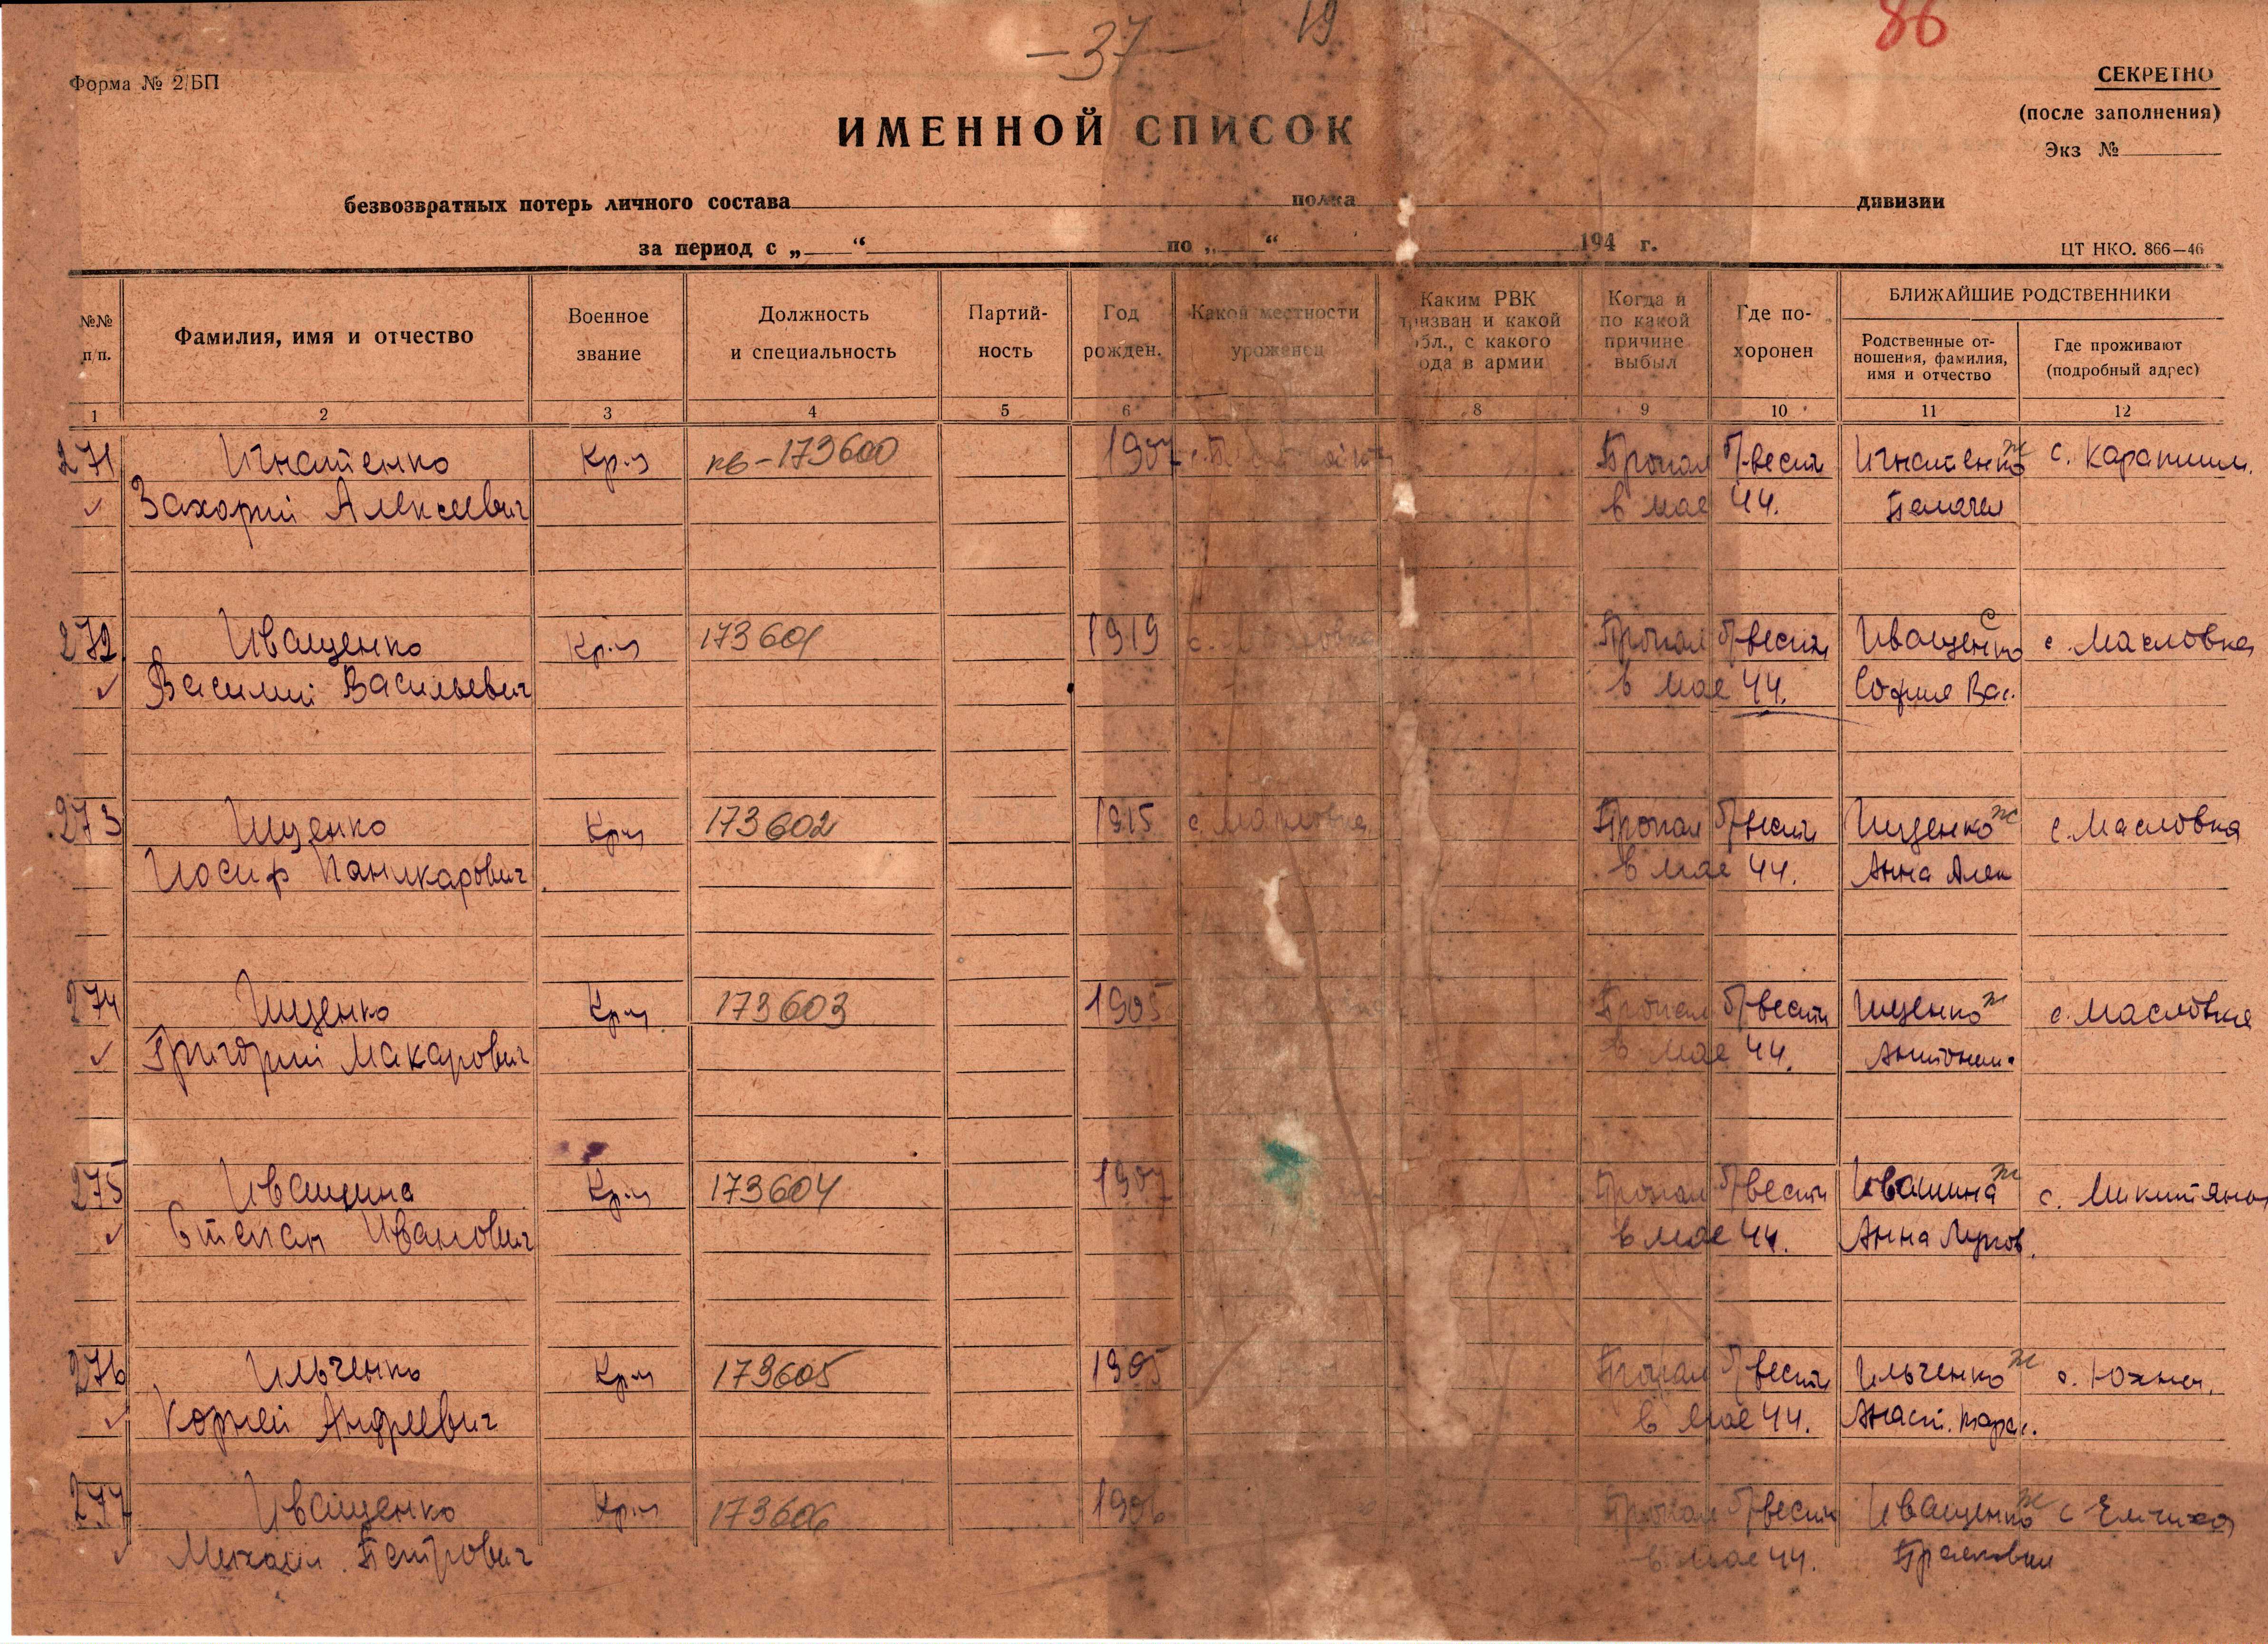 -37-
19
86
Форма № 2/БП
СЕКРЕТНО
(после заполнения)
Экз №
ИМЕННОЙ СПИСОК
безвозвратных потерь личного состава полка дивизии
за период с „ “ по „ “ 194 г.
ЦТ НКО. 866—46
№№ п/п.
Фамилия, имя и отчество
Военное звание
Должность и специальность
Партий-ность
Год рожден.
Какой местности уроженец
Каким РВК призван и какой обл., с какого года в армии
Когда и по какой причине выбыл
Где по-хоронен
БЛИЖАЙШИЕ РОДСТВЕННИКИ
Родственные от-ношения, фамилия, имя и отчество
Где проживают (подробный адрес)
1 2 3 4 5 6 8 9 10 11 12
271 Игнатенко Кр-ц кв-173600 1907 Пропал б/вести Игнатенко ж с. Карапиши.
Захорий Алексеевич в мае 44. Пелагея
272 Иващенко Кр-ц 173601 1919 с. Пропал б/вести Иващенко с с. Масловка
Василий Васильевич в мае 44. София Вас.
273 Ищенко Кр-ц 173602 1915 с. Масловка Пропал б/вести Ищенко ж с. Масловка
Иосиф в мае 44. Анна Алек
274 Ищенко Кр-ц 173603 1905 Пропал б/вести Ищенко ж с. Масловка
Григорий Макарович в мае 44. Антонин.
275 Иващина Кр-ц 173604 1907 Пропал б/вести Иващина ж с.
Степан Иванович в мае 44. Анна
276 Ильченко Кр-ц 173605 1905 Пропал б/вести Ильченко ж с.
Корней Андреевич в мае 44. Анаст. Тарас.
277 Иващенко Кр-ц 173606 1906 Пропал б/вести Иващенко ж с Емчиха
Михаил Петрович в мае 44. Прасковия